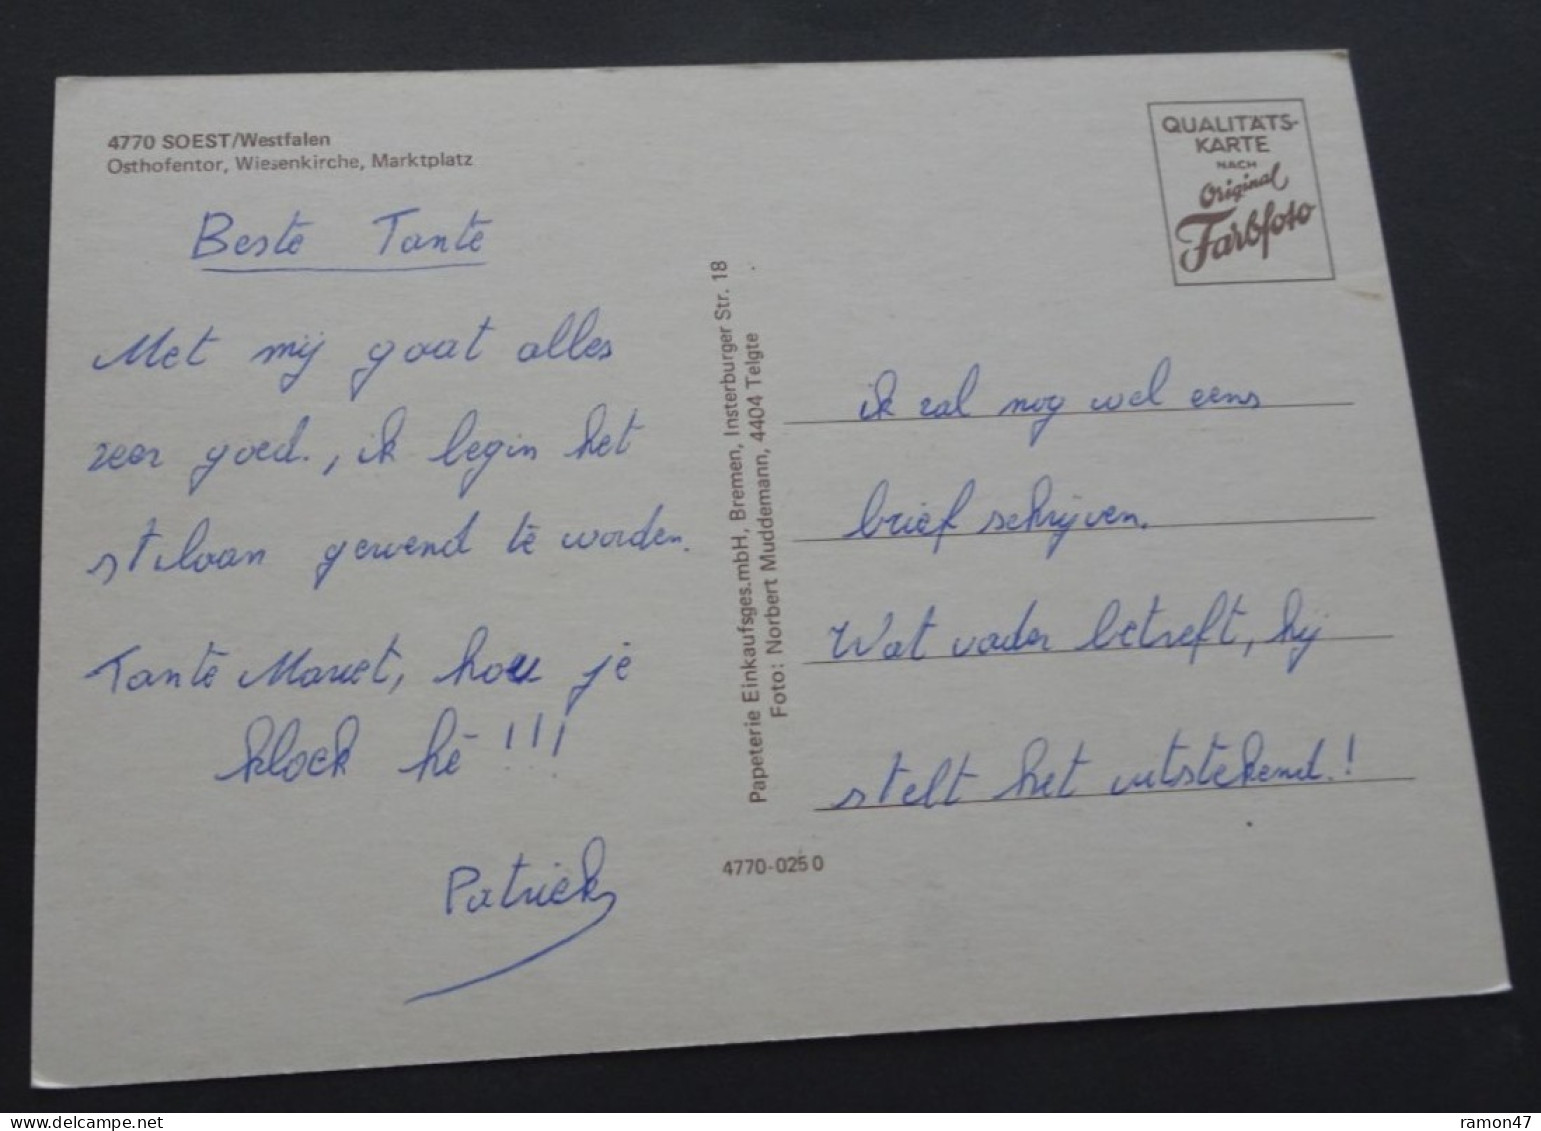 4770 SOEST/Westfalen
Osthofentor, Wiesenkirche, Marktplatz
Beste Tante
Met mij gaat alles
zeer goed., ik begin het
stilaan gewend te worden.
Tante Mariet, hou je
kloek hé !!!
Patrick
Papeterie Einkaufsges.mbH, Bremen, Insterburger Str. 18
Foto: Norbert Muddemann, 4404 Telgte
4770-025 0
QUALITÄTS-
KARTE
NACH
Original
Farbfoto
ik zal nog wel eens
brief schrijven.
Wat vader betreft, hij
stelt het uitstekend.!
delcampe.net
ramon47